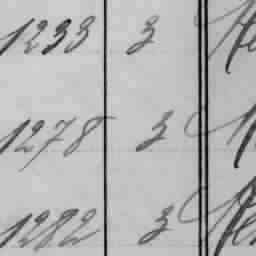 1233 3
1278 3
1282 3